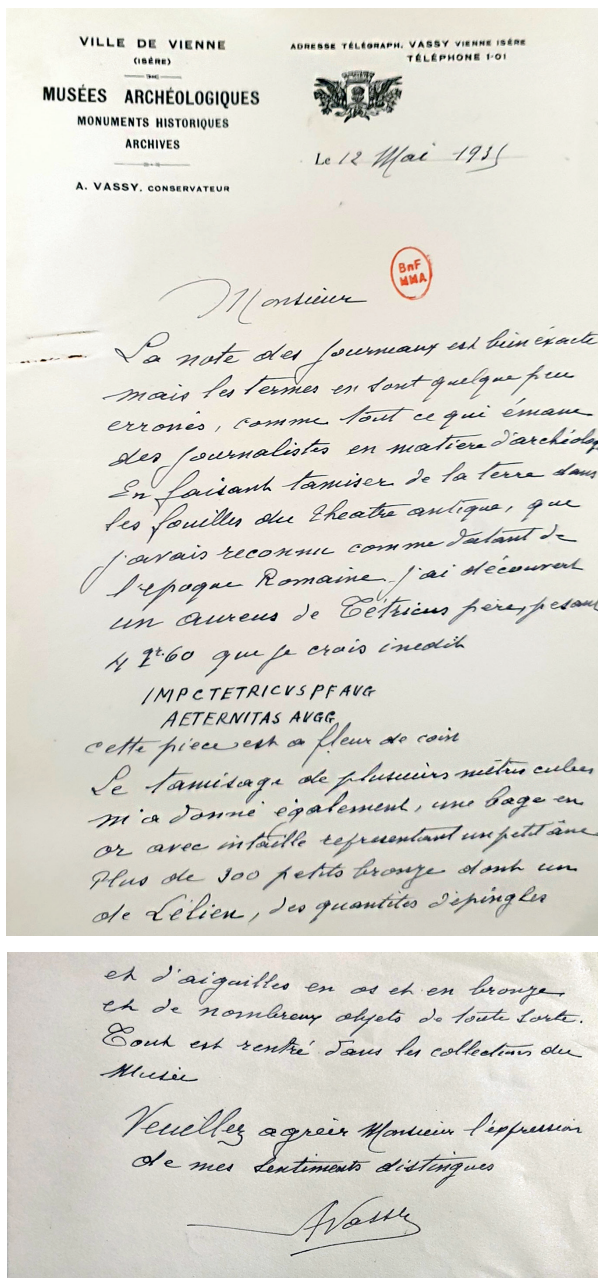 VILLE DE VIENNE
(ISÈRE)
MUSÉES ARCHÉOLOGIQUES
MONUMENTS HISTORIQUES
ARCHIVES
A. VASSY, CONSERVATEUR
ADRESSE TÉLÉGRAPH. VASSY VIENNE ISÈRE
TÉLÉPHONE 1-01
Le 12 Mai 1935
BnF
MMA
Monsieur
La note des journeaux est bien éxacte
mais les termes en sont quelque peu
erronés, comme tout ce qui émane
des journalistes en matiere d'archéolog
En faisant tamiser de la terre dans
les fouilles du theatre antique, que
j'avais reconnu comme datant de
l'epoque Romaine. j'ai découvert
un aureus de Tétricus père, pesant
4 gr. 60 que je crois inedit
IMPCTETRICVSPFAVG
AETERNITAS AVGG
cette piece est a fleur de coin
Le tamisage de plusieurs mètres cubes
m'a donné également, une bage en
or avec intaille representant un petit âne
Plus de 300 petits bronze dont un
de Lélien, des quantites d'épingles
et d'aiguilles en os et en bronze
et de nombreux objets de toute sorte.
Tout est rentré dans les collections du
Musée
Veuillez agréer Monsieur l'éxpression
de mes sentiments distingues
AVassy